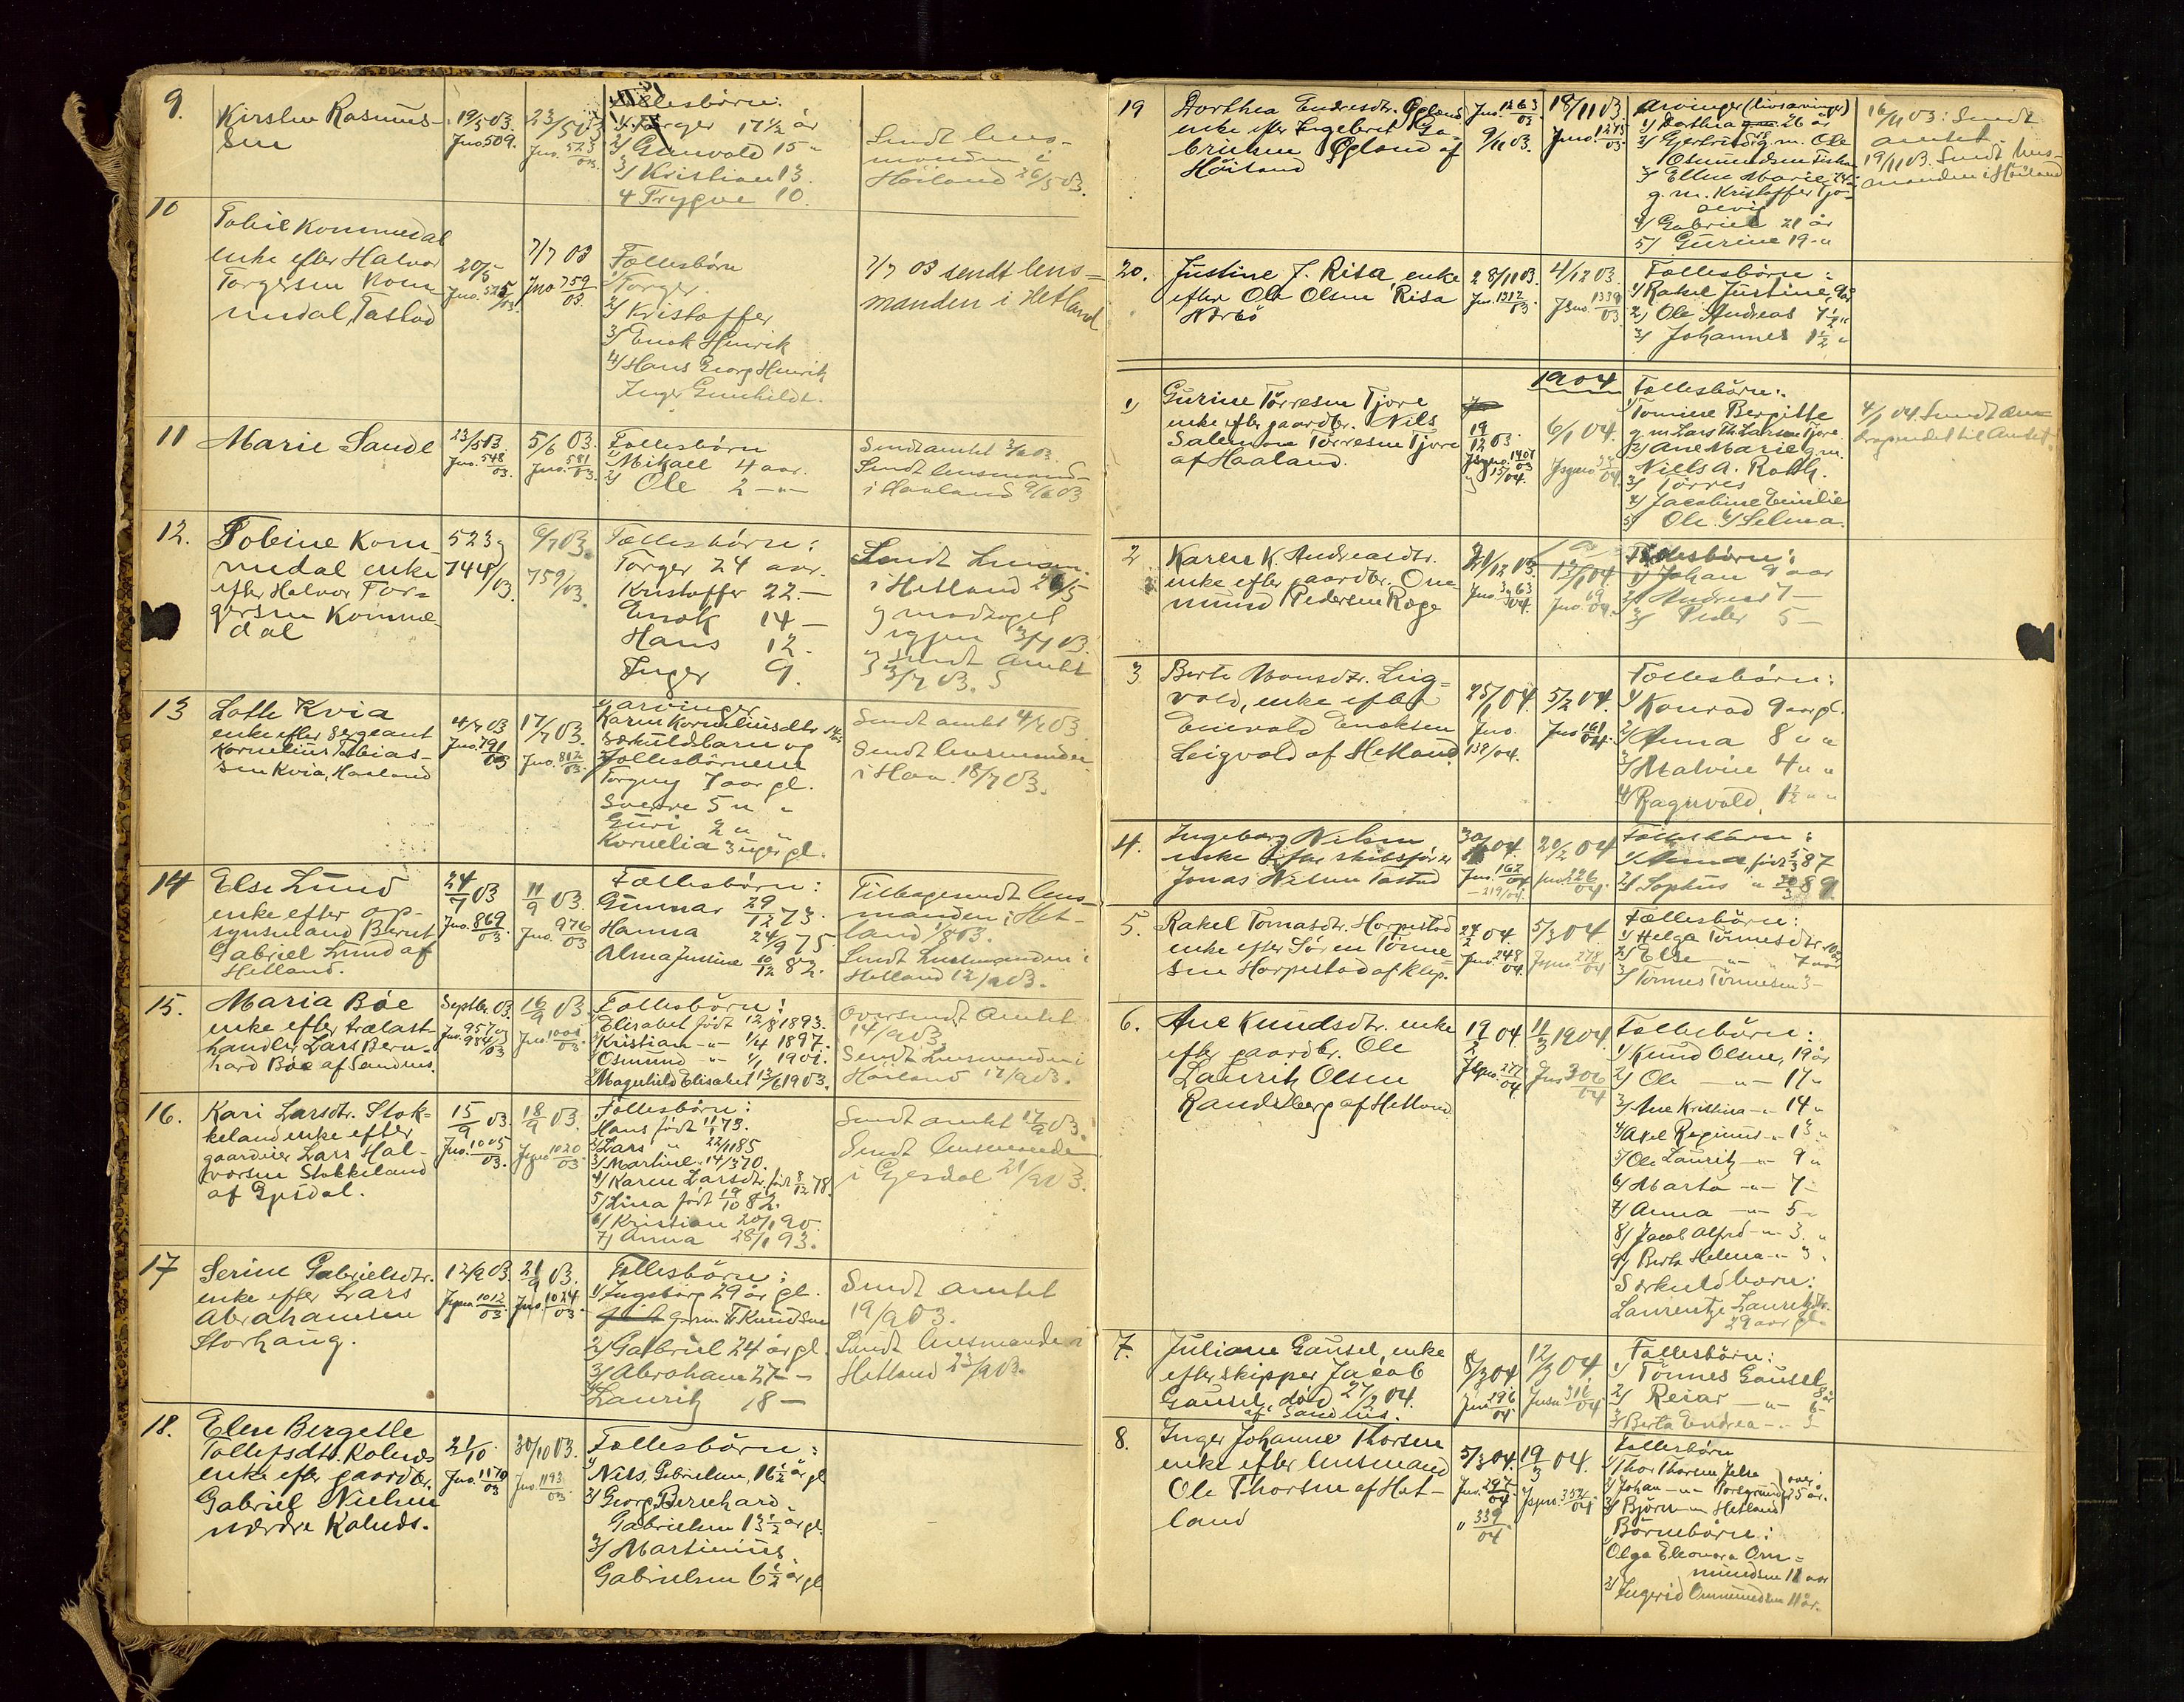 9.
Kirsten Rasmus-
sen
19/5 03.
Jno 509.
23/5 03
Jno. 523/03
Fællesbørn:
1/ Torger 17 1/2 år
2/ Gunvald 15 "
3/ Kristian 13.
4 Trygve 10.
Sendt lens-
manden i
Høiland 26/5 03.
10
Tobie Kommedal
enke efter Halvor
Torgersen Kom-
medal, Tastad
20/5
Jno. 525/03.
7/7 03
Jno 759/03.
Fællesbørn
1/ Torger.
2/ Kristoffer
3/ Enok Henrik
4/ Hans Georg Henrik
Inger Gunhilde.
7/7 03 sendt lens=
manden i Hetland
11
Marie Sande
23/5 03.
Jno. 548/03.
5/6 03.
Jno. 581/03.
Fællesbørn
1/ Mikael 4 aar.
2/ Ole 2 -"-
Sendt amtet 3/6 03.
Sendt lensmand-
i Haaland 9/6 03
12.
Tobine Kom-
medal enke
efter Halvor Tor-
gersen Komme-
dal
523 g
744/03.
6/7 03.
759/03.
Fællesbørn:
Torger 24 aar.
Kristoffer 22.-
Enok 14 -
Hans 12.
Inger 9.
Sendt Lensm.
i Hetland 26/5
g modtaget
igjen 3/7 03.
g sendt amtet
3/7 03.
13
Lotte Kvia
enke efter sergeant
Kornelius Tobias-
sen Kvia, Haaland
4/7 03
Jno. 791/03
17/7 03.
Jno. 812/03.
arvinger
Karen Korneliusdtr 14 år
særkuldsbarn og
Fællesbørnene
Torguy 7 aar gl.
Sverre 5 " "
Guri 2 " "
Kornelia 3 uger gl.
Sendt amtet 4/7 03.
Sendt lensmanden
i Haa. 18/7 03.
14
Else Lund
enke efter op-
synsmand Bernt
Gabriel Lund af
Hetland.
24/7 03
Jno. 869/03.
11/9 03.
Jno. 976/03
Fællesbørn:
Gunnar 29/12 73.
Hanna 24/9 75.
Alma Justine 10/12 82.
Tilbagesendt lens-
manden i Het-
land 1/8 03.
Sendt Lensmanden i
Hetland 12/9 03.
15.
Maria Bøe
enke efter trælast-
handler Lars Bern-
hard Bøe af Sandnes.
Septbr. 03.
Jno. 957 og
984/03
16/9 03
Jno. 1001/03.
Fællesbørn:
Elisabet født 12/8 1893.
Kristian -"- 1/4 1897.
Osmund -"- 1/1 1901.
Magnhild Elisabet 13/6 1903.
Oversendt Amtet
14/9 03.
Sendt Lensmanden i
Høiland 17/9 03.
16.
Kari Larsdtr. Stok-
keland enke efter
gaardeier Lars Hal-
vorsen Stokkeland
af Gjesdal.
15/9 03.
Jno. 1005/03.
18/9 03.
Jgno 1020/03
Fællesbørn:
Hans født 11/1 73.
2/ Lars " 22/11 85
3/ Martine " 14/3 70.
4/ Karen Larsdtr. født 8/12 78.
5/ Lina født 19/10 82.
6/ Kristian 20/1 90.
7/ Anna 28/1 93.
Sendt amtet 17/9 03.
Sendt lensmanden
i Gjesdal 21/9 03.
17
Serine Gabrielsdtr.
enke efter Lars
Abrahamsen
Storhaug.
12/9 03.
Jgno 1012/03
21/9 03.
Jno. 1024/03.
Fællesbørn:
1/ Ingeborg 29 år gl.
g.m. T. Knudsen
2/ Gabriel 24 år gl.
3/ Abraham 27 - -
4/ Lauritz 18 -
Sendt amtet
19/9 03.
Sendt lensmanden
Hetland 23/9 03.
18.
Elen Bergette
Tollefsdtr. Kolnes
enke efter gaardbr.
Gabriel Nielsen
nordre Kolnes.
21/10
Jno. 1170/03
30/10 03.
Jno. 1193/03.
Fællesbørn:
1/ Nils Gabrielsen, 16 1/2 år gl
2/ Georg Bernhard
Gabrielsen 13 1/2 år gl.
3/ Martinius
Gabrielsen 6 1/2 år gl
19
Dorthea Endresdtr. Øgland
enke efter Ingebret Ga-
brielsen Øgland af
Høiland
Jno. 1263/03
9/11 03.
18/11 03.
Jno. 1275/03.
Arvinger (livsarvinger)
1/ Dorthea 26 år
2/ Gjertrud g.m. Ole
Osmundsen
3/ Ellen Marie 24
g.m. Kristoffer Tjø-
4/ Gabriel 21 år
5/ Gurine 19 -"
16/11 03: Sendt
amtet.
19/11 03. Sendt lens-
manden i Høiland
20.
Justine J. Risa, enke
efter Ole Olsen Risa
Nærbø
28/11 03.
Jno. 1312/03.
4/12 03.
Jgno. 1339/03.
Fællesbørn:
1/ Rakel Justine, 9 år
2/ Ole Andreas 7 1/2 "
3/ Johannes 1 1/2 "
1904
1/
Gurine Tørresen Tjore
enke efter gaardbr. Nils
Salemon Tørresen Tjore
af Haaland.
19/12 03.
Jgno. 1407/03
g 15/04.
6/1 04.
Jgno 34/04
Fællesbørn:
1/ Tomine Bergitte
g.m. Lars Th. Larsen Tjore
2/ Ane Marie g.m.
Niels A. Roth.
3/ Tørres
4/ Jacobine Emilie
5/ Ole. 6/ Selma.
4/1 04. Sendt
til Amtet.
2
Karen K. Andreasdtr.
enke efter gaardbr. Om-
mund Pedersen Røge
21/12 03.
Jno. 3 g 63/04.
13/1 04.
Jno. 69/04.
Fællesbørn:
1/ Johan 9 aar
2/ Andreas 7 -
3/ Peder 5 -
3
Berte Monsdtr. Leig=
vold, enke efter
Enevald Enoksen
Leigvold af Hetland
25/1 04.
Jno.
138/04.
5/2 04.
Jno 161/04.
Fællesbørn:
1/ Konrad 9 aar gl.
2/ Anna 8 " "
3/ Malvine 4 " "
4/ Ragnvald 1 1/2 " "
4.
Ingeborg Nilsen
enke efter skibsfører
Jonas Nilsen Tastad
30/1 04.
Jno. 162/04
- 219/04
20/2 04
Jno 226/04.
Fællesbørn:
1/ Anna født 5/3 87
2/ Sophus " 89.
5.
Rakel Tomasdtr. Horpestad
enke efter Søren Tønne-
sen Horpestad af Klep.
27/2 04.
Jno. 248/04.
5/3 04
Jgno 278/04
Fællesbørn:
1/ Helga Tønnesdtr. 10 år
2/ Else -"- 7 aar
3/ Tønnes Tønnesen 3 -
6.
Ane Knudsdtr. enke
efter gaardbr. Ole
Lauritz Olsen
Randeberg af Hetland
19/2 04
Jgno. 277/04
11/3 1904
Jno 306/04
Fællesbørn:
1/ Knud Olsen, 19 år
2/ Ole -"- 17 "
3/ Ane Kristina -"- 14 "
4/ Axel Reginius -"- 13 "
5/ Ole Lauritz -"- 9 "
6/ Marta -"- 7 -
7/ Anna -"- 5 -
8/ Jacob Alfred -"- 3. "
9/ Berta Helena -"- 3 "
Særkuldbarn:
Laurentze Lauritzdtr.
29 aar gl.
7.
Juliane Gausel, enke
efter skipper Jacob
Gausel, død 27/2 04.
af Sandnes.
8/3 04
Jno 296/04
12/3 04
Jno 316/04
Fællesbørn:
1/ Tønnes Gausel 8 år
2/ Reiar -"- 6 -
3/ Berta Endrea -"- 3
8.
Inger Johanne Thorsen
enke efter lensmand
Ole Thorsen af Het-
land
5/3 04.
Jno. 297/04
" 339/04
19/3 04.
Jgno. 354/04
Fællesbørn
1/ Thor Thorsen Jelse
2/ Johan -"- Porsgrund
3/ Bjørn -"- Hetland
over 25 år.
Børnebørn:
1/ Olga Eleonora Om=
mundsen 12 aar
2/ Ingerid Ommundsen 11 år.